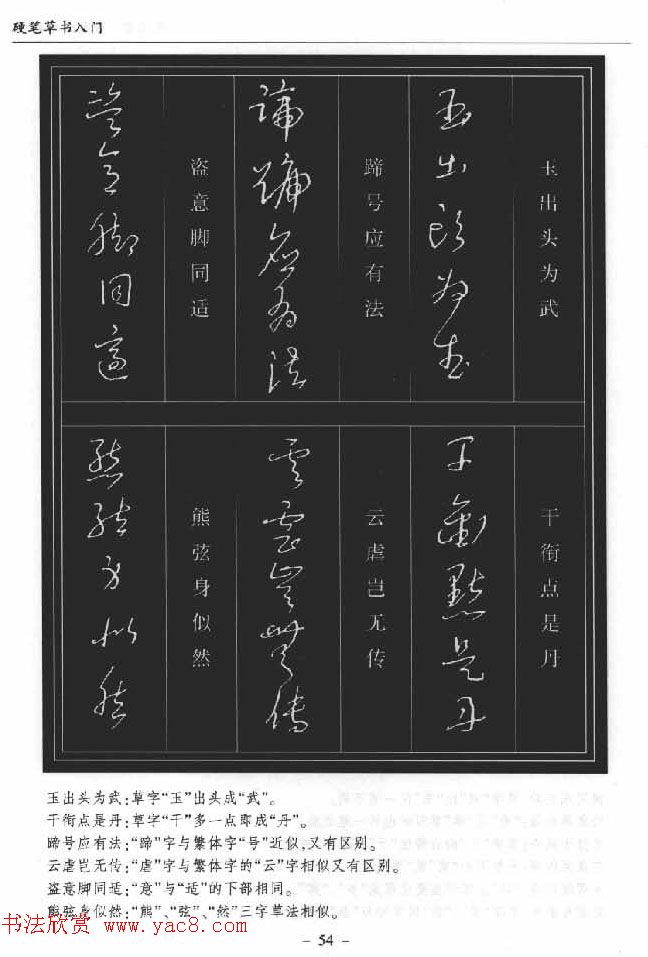 硬笔草书入门
玉出头为武
玉出頭為武
蹄号应有法
蹄號應有法
盗意脚同适
盜意腳同適
干衔点是丹
干銜點是丹
云虐岂无传
雲虐豈無傳
熊弦身似然
熊弦身似然
玉出头为武:草字“玉”出头成“武”。
干衔点是丹:草字“干”多一点即成“丹”。
蹄号应有法:“蹄”字与繁体字“号”近似,又有区别。
云虐岂无传:“虐”字与繁体字的“云”字相似又有区别。
盗意脚同适:“意”与“适”的下部相同。
熊弦身似然:“熊”、“弦”、“然”三字草法相似。
书法欣赏 www.yac8.com
- 54 -